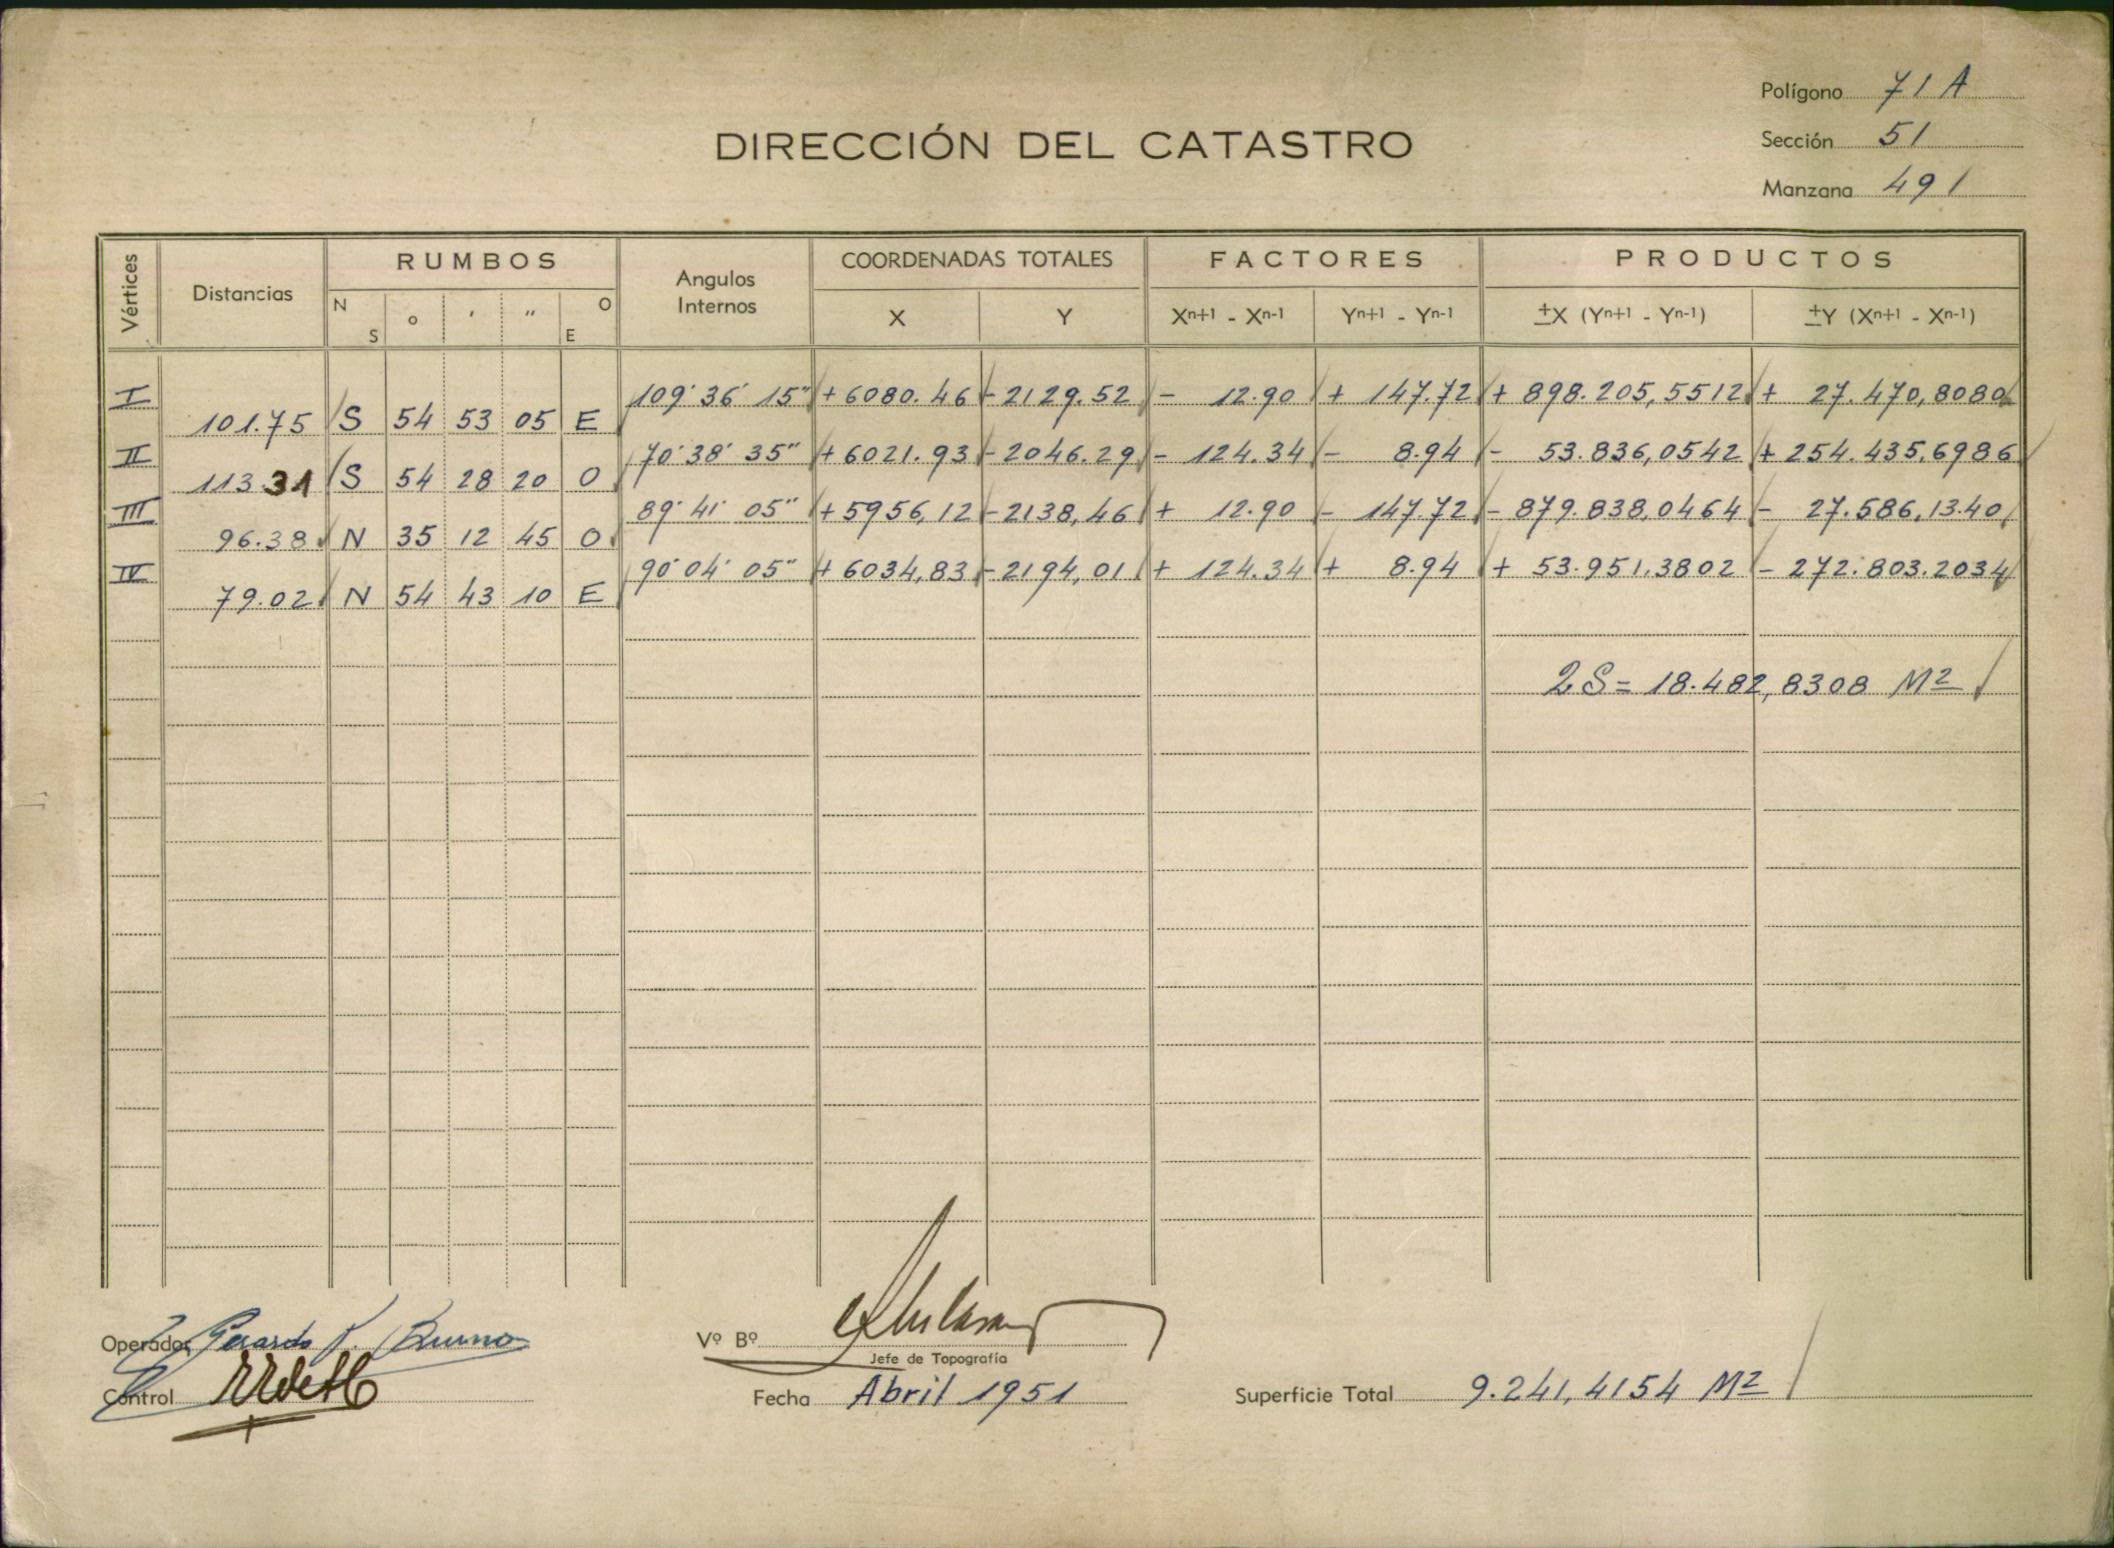 Polígono 71 A
DIRECCIÓN DEL CATASTRO
Sección 51
Manzana 491
Vértices Distancias RUMBOS Angulos Internos COORDENADAS TOTALES FACTORES PRODUCTOS
N S o ′ ″ O E X Y Xn+1 - Xn-1 Yn+1 - Yn-1 ±X (Yn+1 - Yn-1) ±Y (Xn+1 - Xn-1)
I 109° 36' 15" +6080.46 -2129.52 - 12.90 + 147.72 + 898.205,5512 + 27.470,8080
101.75 S 54 53 05 E
II 70° 38' 35" +6021.93 -2046.29 - 124.34 - 8.94 - 53.836,0542 + 254.435,6986
113 31 S 54 28 20 O
III 89° 41' 05" +5956,12 -2138,46 + 12.90 - 147.72 - 879.838,0464 - 27.586,13.40
96.38 N 35 12 45 O
IV 90° 04' 05" +6034,83 -2194,01 + 124.34 + 8.94 + 53.951.3802 - 272.803.2034
79.02 N 54 43 10 E
2S = 18.482,8308 M2
Operador Gerardo Bruno
Vº Bº
Jefe de Topografía
Control
Fecha Abril 1951
Superficie Total 9.241,4154 M2